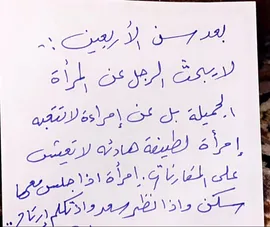 بعد سن الأربعين ..
لا يبحث الرجل عن المرأة
الجميلة بل عن إمراءة لا تتعبه
إمرأة لطيفة هادئه لا تعيش
على المقارنات. إمرأة اذا جلس معها
سكن واذا نظر سعد واذا تكلم ارتاح ..